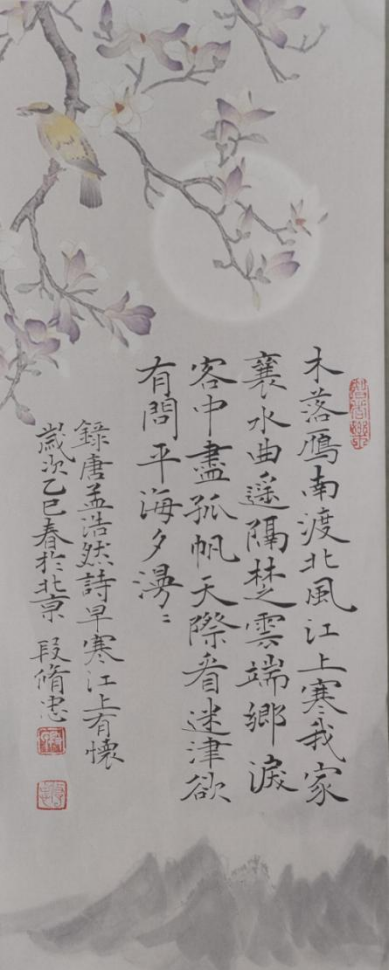 木落雁南渡北風江上寒我家
襄水曲遥隔楚雲端鄉淚
客中盡孤帆天際看迷津欲
有問平海夕漫〻
錄唐孟浩然詩早寒江上有懷
歲次乙巳春於北京 段脩忠